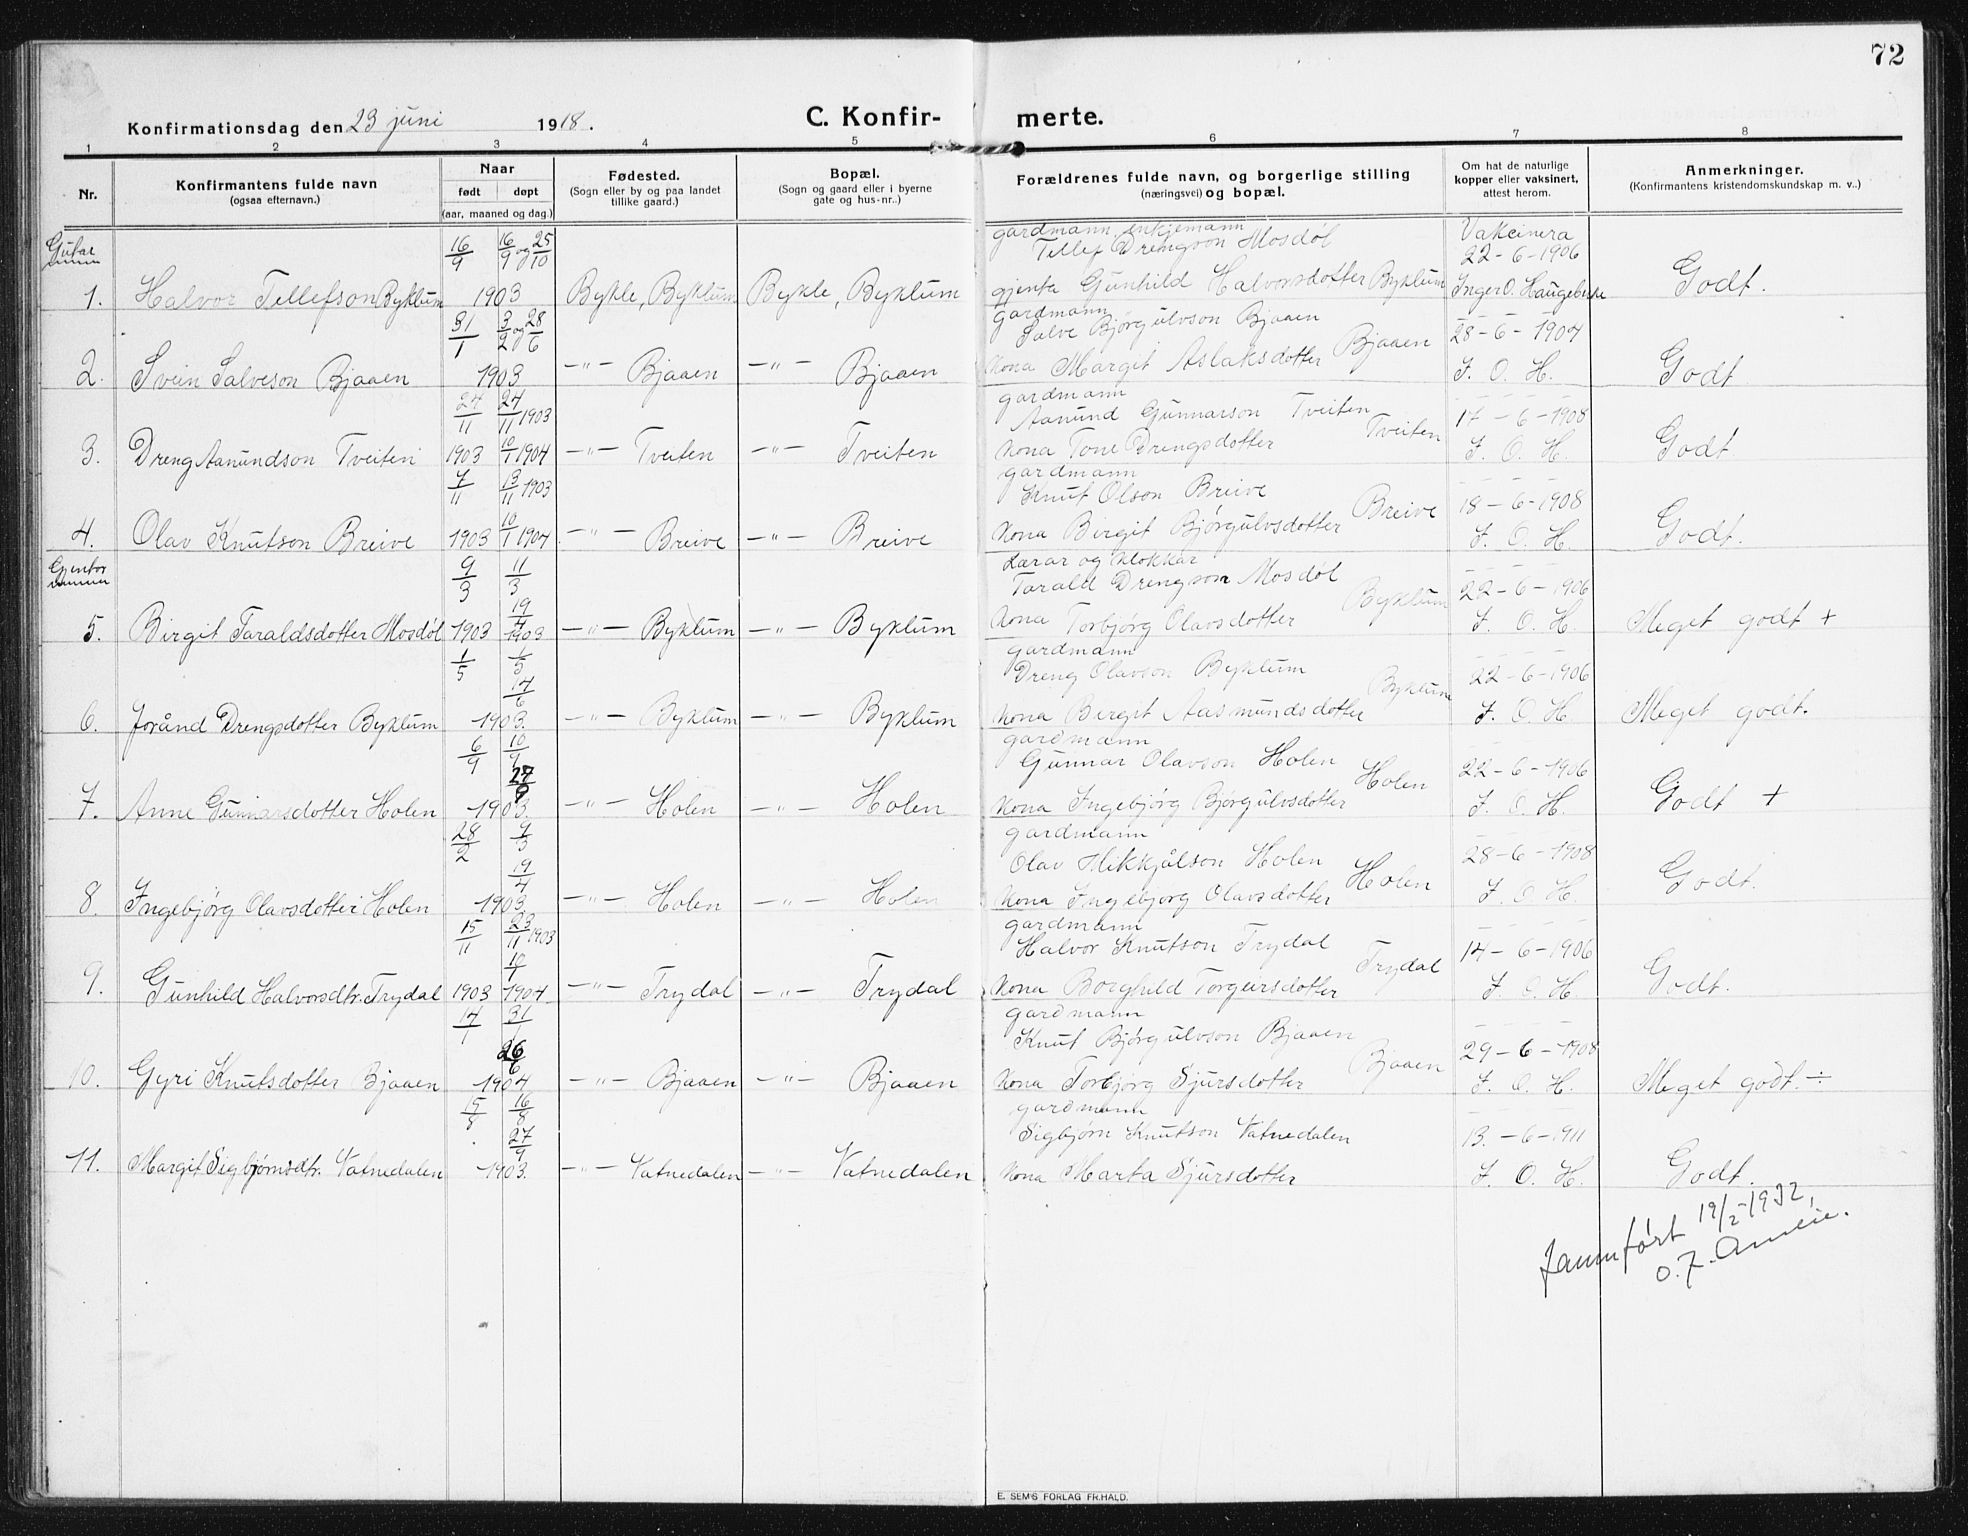 72
Konfirmationsdag den 23 juni 1918. C. Konfir- merte.
1 2 3 4 5 6 7 8
Nr. Konfirmantens fulde navn (ogsaa efternavn.) Naar født døpt (aar, maaned og dag.) Fødested. (Sogn eller by og paa landet tillike gaard.) Bopæl. (Sogn og gaard eller i byerne gate og hus-nr..) Forældrenes fulde navn, og borgerlige stilling (næringsvei) og bopæl. Om hat de naturlige kopper eller vaksinert, attest herom. Anmerkninger. (Konfirmantens kristendomskundskap m. v..)
Gutar
gardmann, enkjemann Vakcinera
16/9 16/9 og 25/10 Tellef Drengson Mosdøl 22-6-1906
1. Halvor Tellefson Byklum 1903 Bykle, Byklum Bykle, Byklum gjenta Gunhild Halvorsdotter Byklum Inger O. Haugeberte Godt.
gardmann
31/1 3/2 og 28/6 Salve Bjørgulvson Bjaaen 28-6-1904
2. Svein Salveson Bjaaen 1903 -"- Bjaaen -"- Bjaaen kona Margit Aslaksdotter Bjaaen I. O. H. Godt
gardmann
24/11 24/11 1903 Aanund Gunnarson Tveiten 17-6-1908
3. Dreng Aanundson Tveiten 1903 10/1 1904 -"- Tveiten -"- Tveiten kona Tone Drengsdotter Tveiten I. O. H. Godt
gardmann
7/11 13/11 1903 Knut Olson Breive 18-6-1908
4. Olav Knutson Breive 1903 10/1 1904 -"- Breive -"- Breive kona Birgit Bjørgulvsdotter Breive I. O. H. Godt.
Gjentor
Lærar og klokkar
9/3 11/3 Tarald Drengson Mosdøl 22-6-1906
19/4
5. Birgit Taraldsdotter Mosdøl 1903 1903 -"- Byklum -"- Byklum kona Torbjørg Olavsdotter Byklum I. O. H. Meget godt +
gardmann
1/5 1/5 Dreng Olavson Byklum 22-6-1906
14/6
6. Jorånd Drengsdotter Byklum 1903. -"- Byklum -"- Byklum kona Birgit Aasmundsdotter Byklum I. O. H. Meget godt.
gardmann
6/9 10/9 Gunnar Olavson Holen 22-6-1906
7. Anne Gunnarsdotter Holen 1903. -"- Holen -"- Holen kona Ingebjørg Bjørgulvsdotter Holen I. O. H. Godt +
gardmann
28/2 9/3 Olav Mikkjålson Holen 28-6-1908
19/4
8. Ingebjørg Olavsdotter Holen 1903. -"- Holen -"- Holen kona Ingebjørg Olavsdotter Holen I. O. H. Godt.
gardmann
15/11 23/11 1903 Halvor Knutson Trydal 14-6-1906
10/1
9. Gunhild Halvorsdtr. Trydal 1903 1904 -"- Trydal -"- Trydal kona Borghild Torgersdotter Trydal I. O. H Godt.
gardmann
14/1 31/1 Knut Bjørgulvson Bjaaen 29-6-1908
26/6
10. Gyri Knutsdotter Bjaaen 1904 -"- Bjaaen -"- Bjaaen kona Torbjørg Sjursdotter Bjaaen I. O. H. Meget godt. ÷
gardmann
15/8 16/8 Sigbjørn Knutson Vatnedalen 13.-6-1911
27/9
11. Margit Sigbjørnsdtr. Vatnedalen 1903. -"- Vatnedalen -"- Vatnedalen kona Marta Sjursdotter I. O. H. Godt.
Jamnført 19/2-1932,
O. J.
E. SEM'S FORLAG FR.HALD.